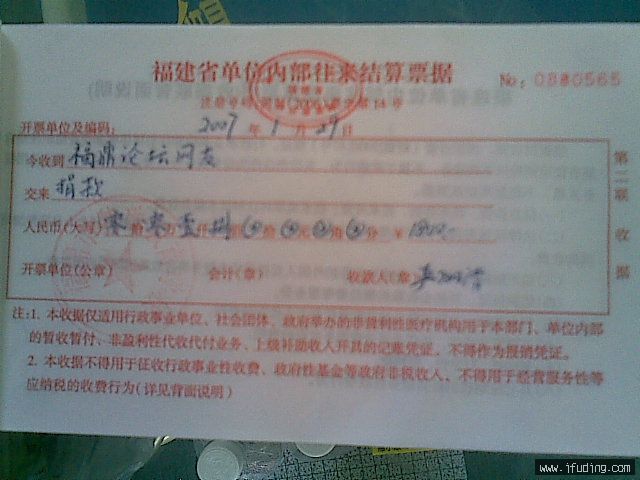 福建省单位内部往来结算票据
No: 0880565
开票单位及编码: 2007年1月29日
今收到 福鼎论坛网友
交来 捐款
人民币(大写) 零拾零万壹仟捌佰 拾 元 角 分 ¥ 1800.-
开票单位(公章) 会计(章) 收款人(章)
第二联 收据
注:1. 本收据仅适用行政事业单位、社会团体、政府举办的非营利性医疗机构用于本部门、单位内部
的暂收暂付、非盈利性代收代付业务、上级补助收入开具的记账凭证,不得作为报销凭证。
2. 本收据不得用于征收行政事业性收费、政府性基金等政府非税收入,不得用于经营服务性等
应纳税的收费行为(详见背面说明)
www.ifuding.com